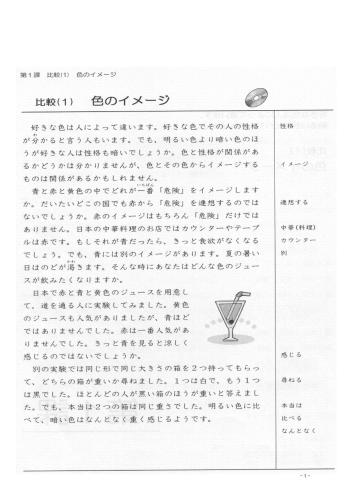 第1課　比較(1)　色のイメージ
比較(1)　色のイメージ
好きな色は人によって違います。好きな色でその人の性格
が分かると言う人もいます。でも、明るい色より暗い色のほ
うが好きな人は性格も暗いでしょうか。色と性格が関係があ
るかどうかは分かりませんが、色とその色からイメージする
ものは関係があるかもしれません。
青と赤と黄色の中でどれが一番「危険」をイメージします
か。だいたいどこの国でも赤から「危険」を連想するのでは
ないでしょうか。赤のイメージはもちろん「危険」だけでは
ありません。日本の中華料理のお店ではカウンターやテーブ
ルは赤です。もしそれが青だったら、きっと食欲がなくなる
でしょう。でも、青には別のイメージがあります。夏の暑い
日はのどが渇きます。そんな時にあなたはどんな色のジュー
スが飲みたくなりますか。
日本で赤と青と黄色のジュースを用意し
て、道を通る人に実験してみました。黄色
のジュースも人気がありましたが、青ほど
ではありませんでした。赤は一番人気があ
りませんでした。きっと青を見ると涼しく
感じるのではないでしょうか。
別の実験では同じ形で同じ大きさの箱を2つ持ってもらっ
て、どちらの箱が重いか尋ねました。1つは白で、もう1つ
は黒でした。ほとんどの人が黒い箱のほうが重いと答えまし
た。でも、本当は2つの箱は同じ重さでした。明るい色に比
べて、暗い色はなんとなく重く感じるようです。
性格
イメージ
連想する
中華(料理)
カウンター
別
感じる
尋ねる
本当は
比べる
なんとなく
-1-